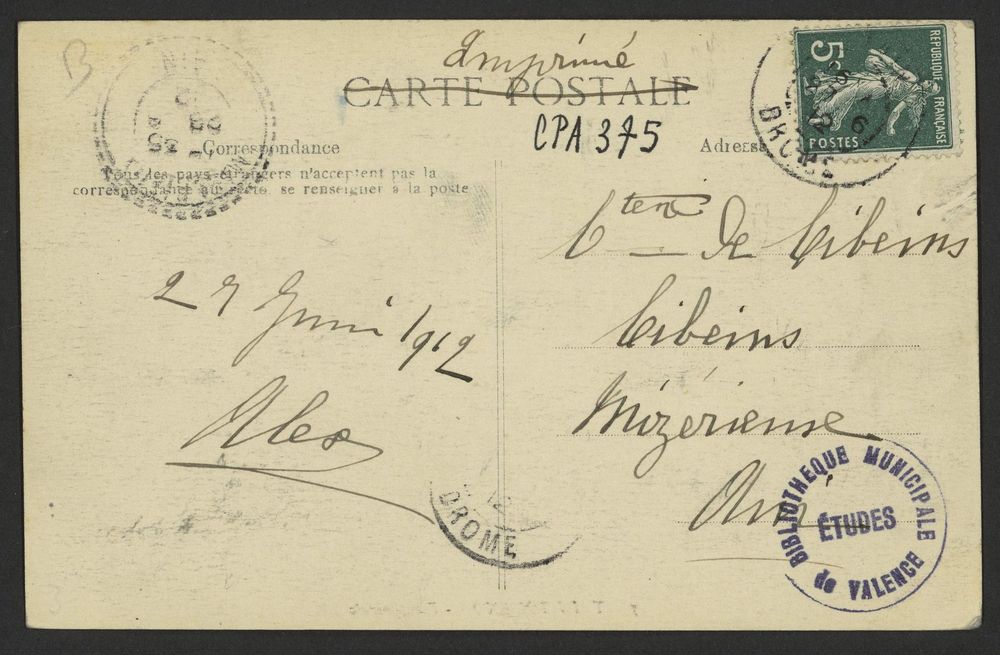 B
Imprimé
CARTE POSTALE
CPA 375
Correspondance
Tous les pays étrangers n'acceptent pas la
correspondance au recto. se renseigner à la poste
Adresse
5c
REPUBLIQUE FRANÇAISE
POSTES
DROME
Ctesse de Cibeins
Cibeins
Mizérieux
Ain
27 Juin 1912
Alex
12
DROME
BIBLIOTHEQUE MUNICIPALE
ÉTUDES
de VALENCE